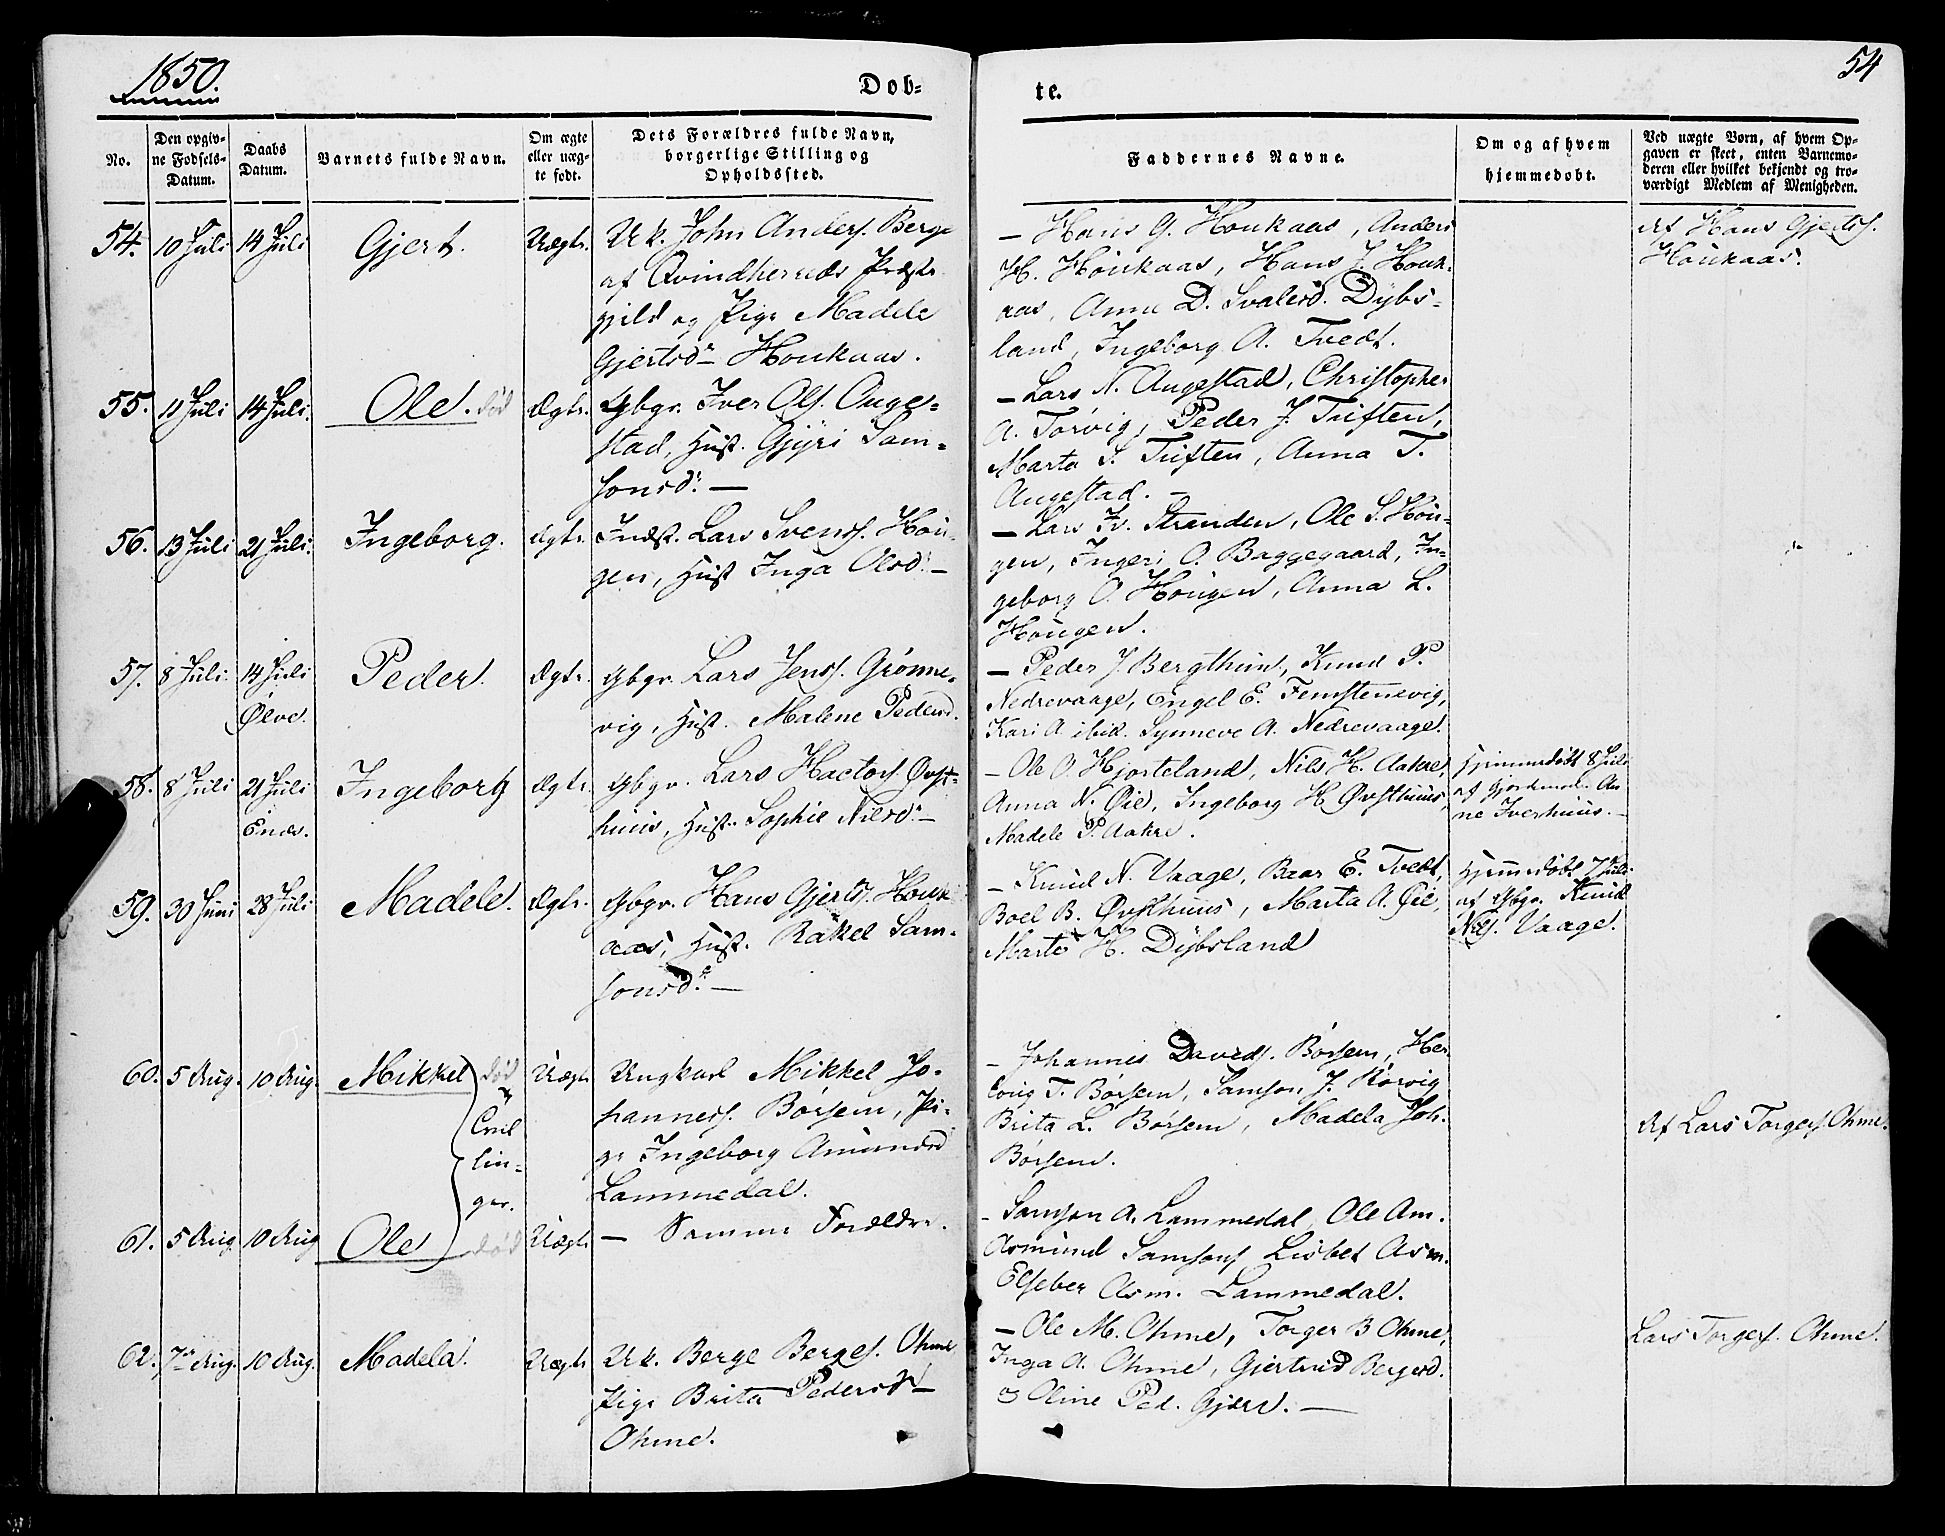 1850.
Døb=
te.
54
No.
Den opgiv-
ne Fødsels-
Datum.
Daabs
Datum.
Barnets fulde Navn.
Om ægte
eller uæg-
te født.
Dets Forældres fulde Navn,
borgerlige Stilling og
Opholdssted.
Faddernes Navne.
Om og af hvem
hjemmedøbt.
Ved uægte Børn, af hvem Op-
gaven er skeet, enten Barnemo-
deren eller hvilket bekjendt og tro-
værdigt Medlem af Menigheden.
54. 10 Juli 14 Juli Gjert. Uægte.
Uk. John Anders. Berge
af Qvindherreds Præste
gjeld og Pige Madele
Gjertsdr Houkaas.
— Hans G. Houkaas, Anders
H. Houkaas, Hans J. Houk-
aas, Anna D. Svalesd. Dybs-
land, Ingeborg A. Tvedt.
Af Hans Gjerts.
Houkaas.
55. 11 Juli 14 Juli. Ole. død Ægte.
Gbgr. Iver Ols. Auge=
stad, Hust. Gjyri Sam=
sonsdr. —
— Lars N. Augestad, Christopher
A. Tørvig, Peder J. Tuften,
Marta S. Tuften, Anna T.
Augestad. —
56. 13 Juli 21 Juli. Ingeborg. Ægte.
Indst. Lars Svends. Hou-
gen, Hust Inga Olsdr. —
— Lars Iv. Stranden, Ole S. Hou=
gen, Ingeri O. Baggegaard, In=
geborg O. Hougen, Anna L.
Hougen.
57. 8 Juli. 14 Juli
Ølve.
Peder. Ægte.
Gbgr. Lars Jens. Grønne-
vig, Hust. Malene Pedersd.
— Peder J. Bergthun, Knud P.
Nedrevaage, Engel E. Femstenevig,
Kari A ibid. Synneve A. Nedrevaage.
58. 8 Juli 21 Juli
Enes.
Ingeborg Ægte.
Gbgr. Lars Hactors. Øvst=
huus, Hust. Sophie Nilsdr. —
— Ole O. Hjorteland, Nils H. Aakre,
Anna N. Øie, Ingeborg H Øvsthuus,
Madele P. Aakre.
Hjemmedøbt 8 Juli
af Gjordmod. An
ne Iverhuus. —
59. 30 Juni 28 Juli Madele. Ægte.
Gbgr. Hans Gjerts. Houk
aas, Hust. Rakel Sam-
sonsdr. —
— Knud N. Vaage, Baar E. Tvedt,
Boel B. Øvsthuus, Marta A. Øie,
Marta H. Dybsland
Hjemmedøbt 7 Juli
af Gbgr. Knud
Nils. Vaage.
60. 5 Aug. 10 Aug. Mikkel død Uægte
Tvil
lin=
ger.
Ungkarl Mikkel Jo-
hanness. Børsem, Pi-
ge Ingeborg Amundsd
Lammedal.
— Johannes Davids. Børsem, Her
borg T. Børsem, Samson J. Rørvig
Brita L. Børsem, Madela Joh.
Børsem.
Af Lars Torgers. Ohme.
61. 5 Aug. 10 Aug Ole død Uægte
— Samme Forældre.
— Samson A. Lammedal, Ole Am.
Asmund Samsons Lisbet Asm.
Elseber Asm. Lammedal.
62. 7de Aug. 10 Aug. Madela. Uægte
Uk. Berge Berges. Ohme
Pige Brita Pedersdr —
Ohme.
— Ole M. Ohme, Torger B Ohme,
Inga A. Ohme, Gjertrud Bergesd.
og Oline Ped. Gjøen. —
Lars Torgers. Ohme.